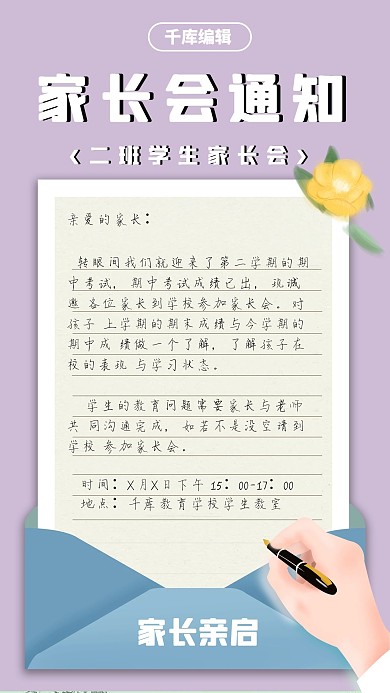 千库编辑
家长会通知
《二班学生家长会》
亲爱的家长：
转眼间我们就迎来了第二学期的期
中考试，期中考试成绩已出，现诚
邀 各位家长到学校参加家长会。对
孩子 上学期的期末成绩与今学期的
期中成 绩做一个了解，了解孩子在
校的表现 与学习状态。
学生的教育问题需要家长与老师
共 同沟通完成，如若不是没空请到
学校 参加家长会。
时间：X月X日下午 15：00-17：00
地点：千库教育学校学生教室
家长亲启